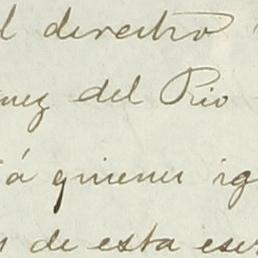 l derecho
nez del Rio
á quienes ig
s de esta escr